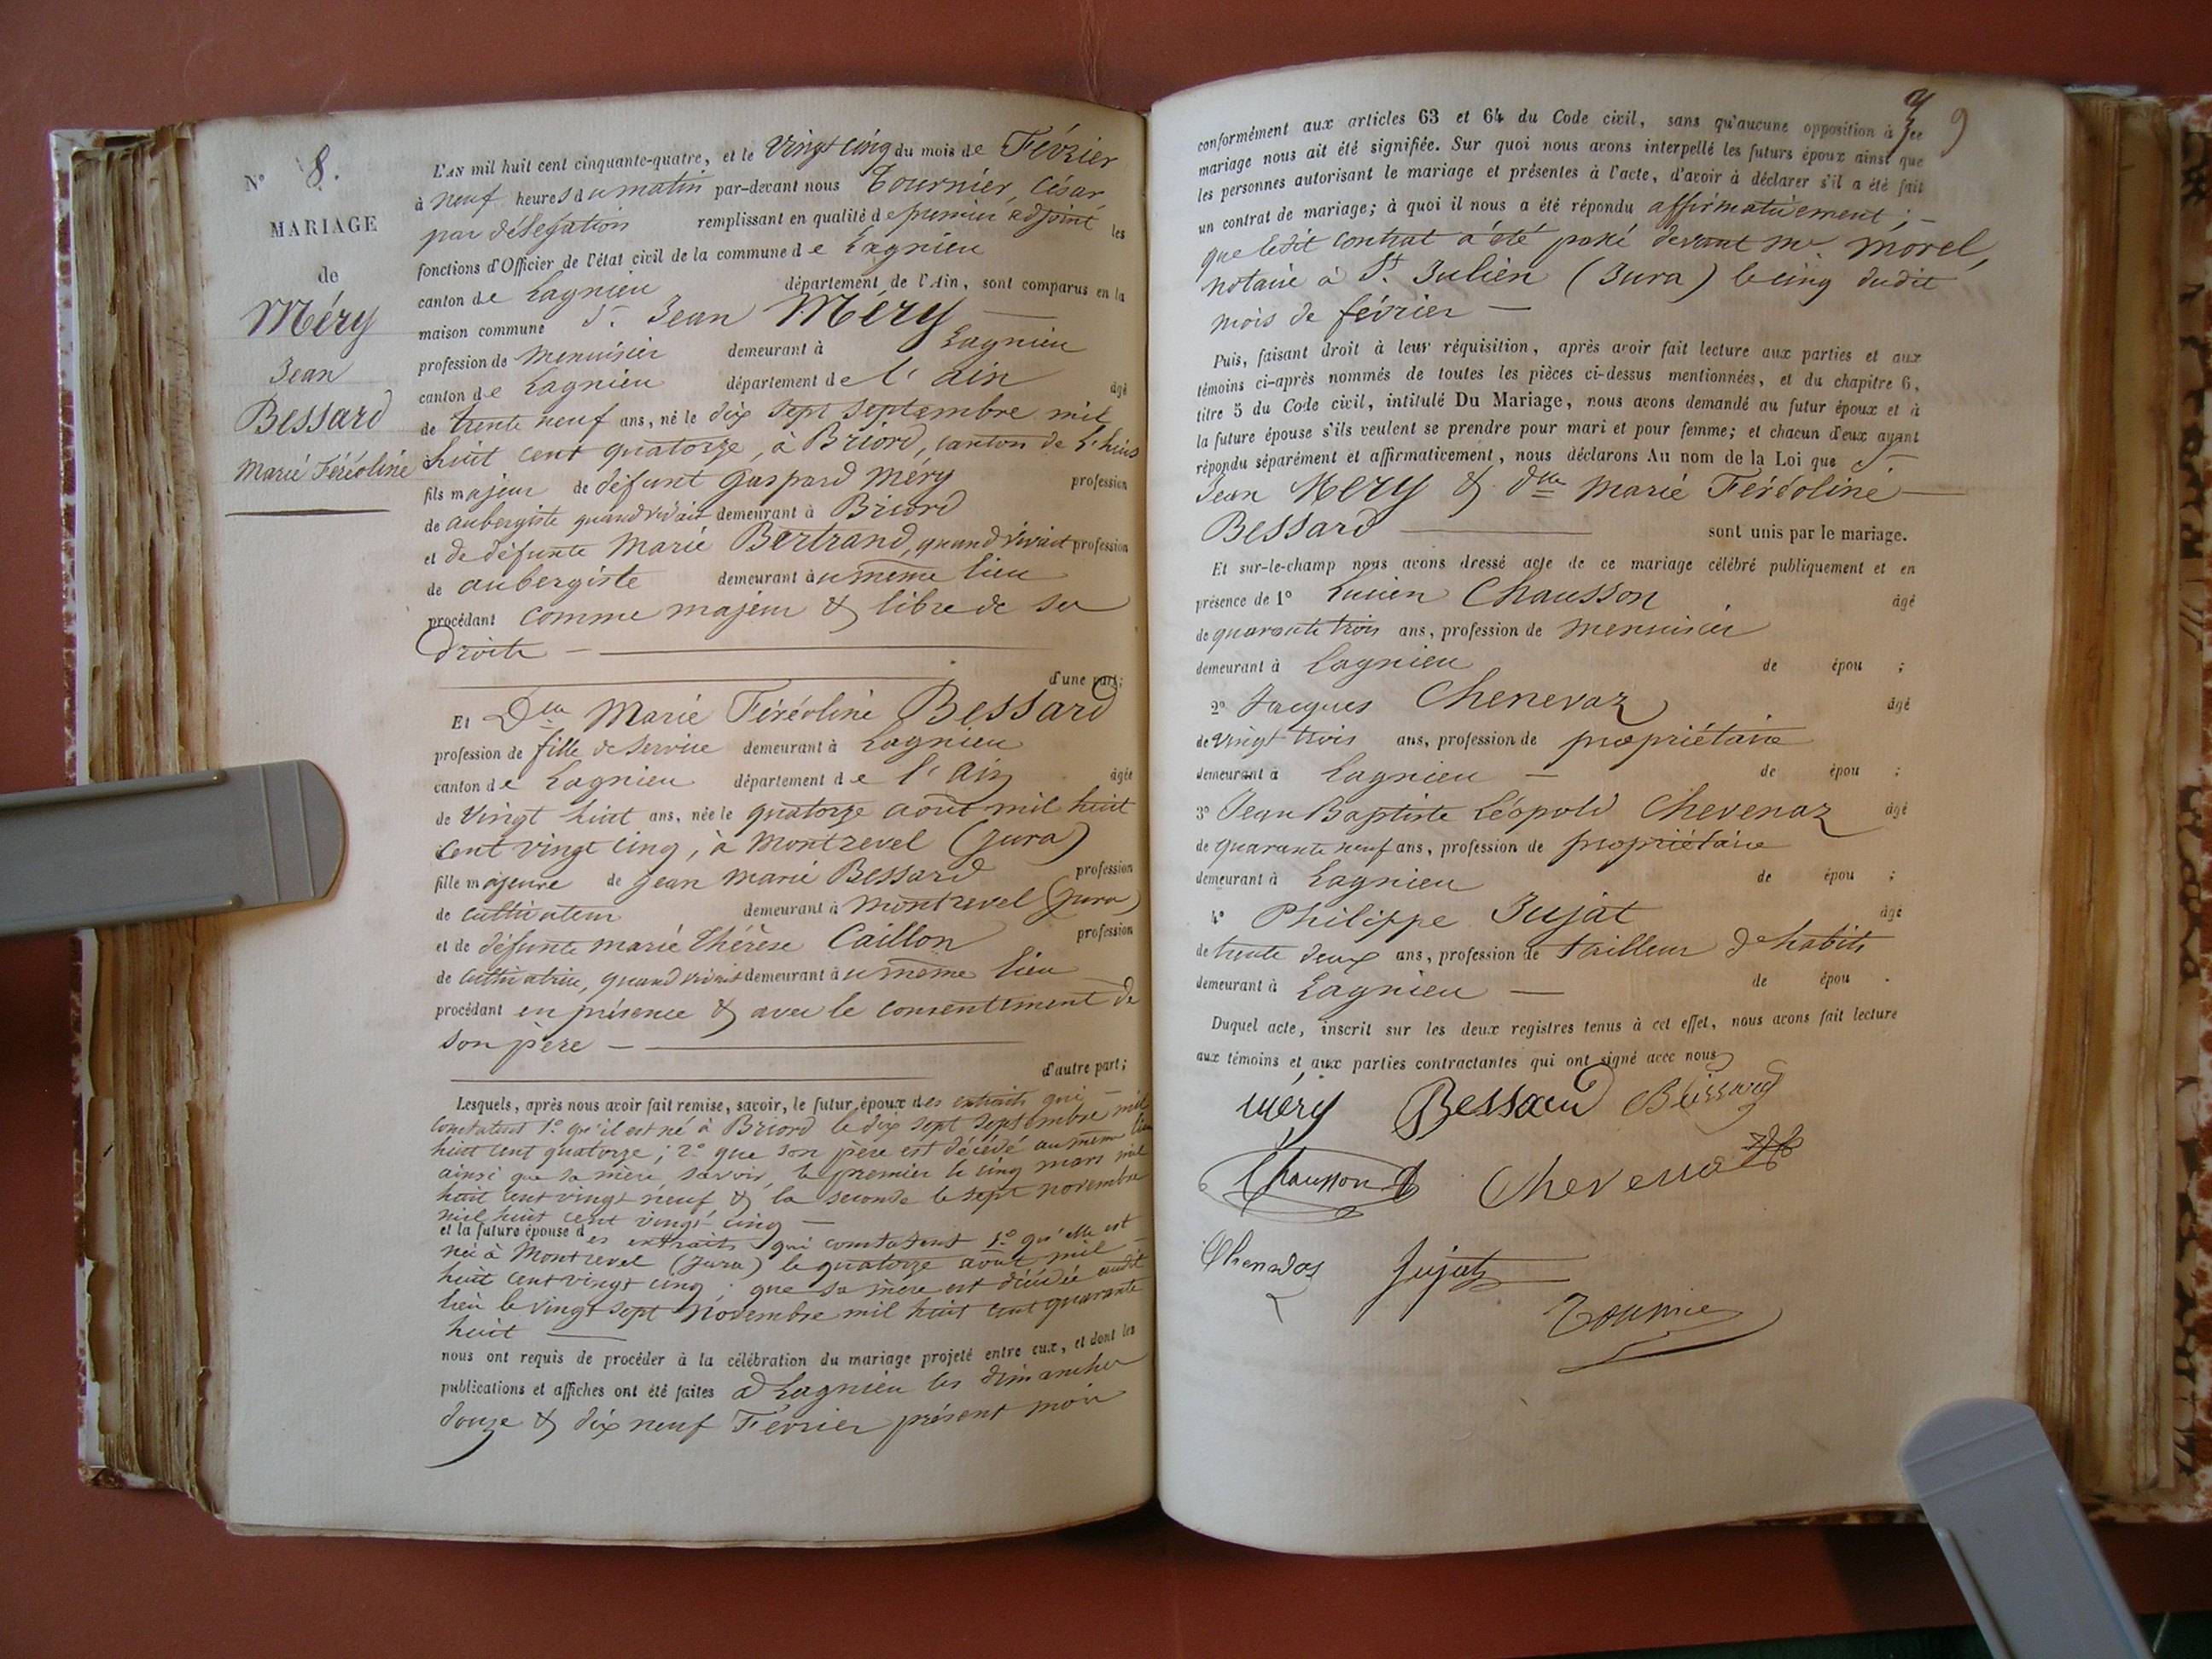 N° 8.
MARIAGE
de
Méry
Jean
Bessard
Marie Féréoline
L'AN mil huit cent cinquante-quatre, et le Vingt cinq du mois de Février
à neuf heures du matin par-devant nous Tournier, César,
par délégation remplissant en qualité de premier adjoint les
fonctions d'Officier de l'état civil de la commune de Lagnieu
canton de Lagnieu département de l'Ain, sont comparus en la
maison commune Sr Jean Méry
profession de Menuisier demeurant à Lagnieu
canton de Lagnieu département de l'ain âgé
de trente neuf ans, né le dix sept septembre mil
huit cent quatorze, à Briord, canton de L'huis
fils majeur de défunt Gaspard Méry profession
de aubergiste quand vivait demeurant à Briord
et de défunte Marie Bertrand, quand vivait profession
de aubergiste demeurant au même lieu
procédant comme majeur & libre de ses
droits
d'une part;
Et Dlle Marie Féréoline Bessard
profession de fille de service demeurant à Lagnieu
canton de Lagnieu département de l'ain âgée
de Vingt huit ans, née le quatorze août mil huit
cent vingt cinq, à Montrevel (Jura)
fille majeure de Jean Marie Bessard profession
de cultivateur demeurant à Montrevel (Jura)
et de défunte marie Thérèse Caillon profession
de cultivatrice, quand vivait demeurant au même lieu
procédant en présence & avec le consentement de
son père
d'autre part;
Lesquels, après nous avoir fait remise, savoir, le futur époux des extraits qui
constatent 1° qu'il est né à Briord le dix sept septembre mil
huit cent quatorze; 2° que son père est décédé au même lieu
ainsi que sa mère savoir, le premier le cinq mars mil
huit cent vingt neuf & la seconde le sept novembre
mil huit cent vingt cinq
et la future épouse des extraits qui constatent 1° qu'elle est
née à Montrevel (Jura) le quatorze août mil
huit cent vingt cinq que sa mère est décédée audit
lieu le vingt sept Novembre mil huit cent quarante
huit
nous ont requis de procéder à la célébration du mariage projeté entre eux, et dont les
publications et affiches ont été faites à Lagnieu les dimanches
douze & dix neuf Février présent mois
9
conformément aux articles 63 et 64 du Code civil, sans qu'aucune opposition à ce
mariage nous ait été signifiée. Sur quoi nous avons interpellé les futurs époux ainsi que
les personnes autorisant le mariage et présentes à l'acte, d'avoir à déclarer s'il a été fait
un contrat de mariage; à quoi il nous a été répondu affirmativement;
que ledit contrat a été passé devant Me Morel,
notaire à St Julien (Jura) le cinq dudit
mois de février
Puis, faisant droit à leur réquisition, après avoir fait lecture aux parties et aux
témoins ci-après nommés de toutes les pièces ci-dessus mentionnées, et du chapitre 6,
titre 5 du Code civil, intitulé Du Mariage, nous avons demandé au futur époux et à
la future épouse s'ils veulent se prendre pour mari et pour femme; et chacun d'eux ayant
répondu séparément et affirmativement, nous déclarons Au nom de la Loi que Sr
Jean Méry & Dlle Marie Féréoline
Bessard sont unis par le mariage.
Et sur-le-champ nous avons dressé acte de ce mariage célébré publiquement et en
présence de 1° Lucien Chausson âgé
de quarante trois ans, profession de menuisier
demeurant à Lagnieu de épou ;
2° Jacques Chenevaz âgé
de vingt trois ans, profession de propriétaire
demeurant à Lagnieu de épou ;
3° Jean Baptiste Léopold Chevenaz âgé
de quarante neuf ans, profession de propriétaire
demeurant à Lagnieu de épou ;
4° Philippe Jujat âgé
de trente deux ans, profession de tailleur d'habits
demeurant à Lagnieu de épou .
Duquel acte, inscrit sur les deux registres tenus à cet effet, nous avons fait lecture
aux témoins et aux parties contractantes qui ont signé avec nous
Méry Bessard Bessard
Chausson
Jujat
Tournier